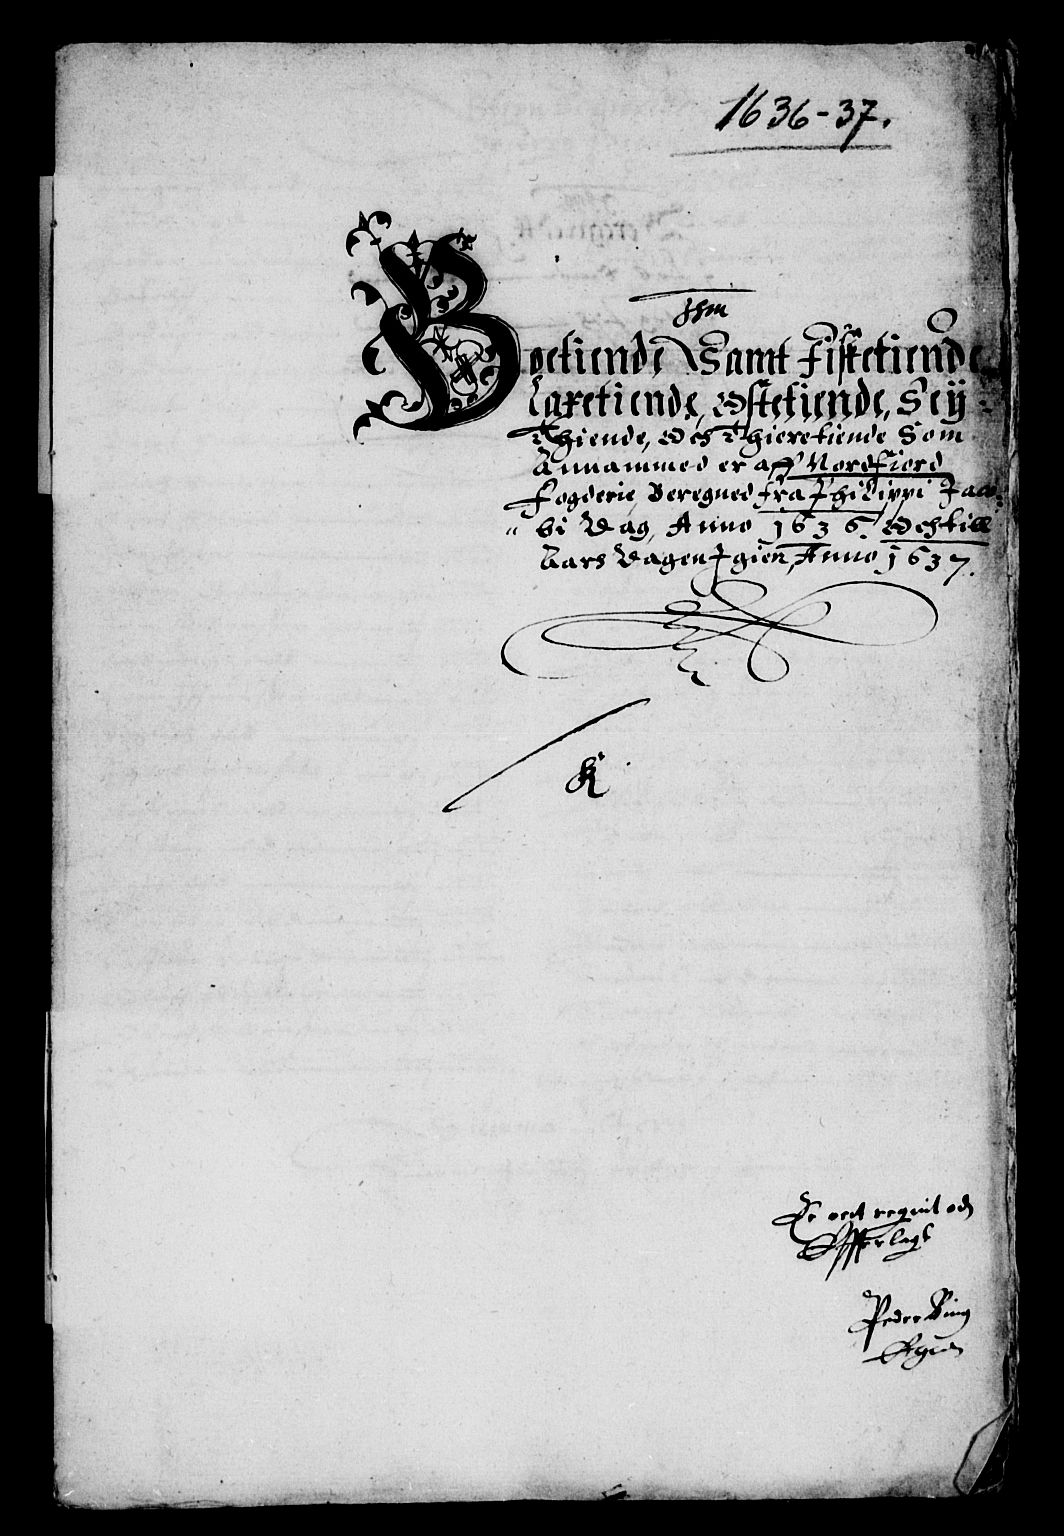 1636-37.
Jhm
Boetiende Samt Fisketiende
Laxetiende, Ostetiende, Seij-
Thiende, och Thieretiende Som
Annammed er aff Nordfiord
Fogderie, Beregned fra Philippi Jaco-
bi Dag, Anno 1636. och till
Aars Dagen Igien, Anno 1637.
K
Er ret regnit och
Offuerlagt
Peder Bing
Egen